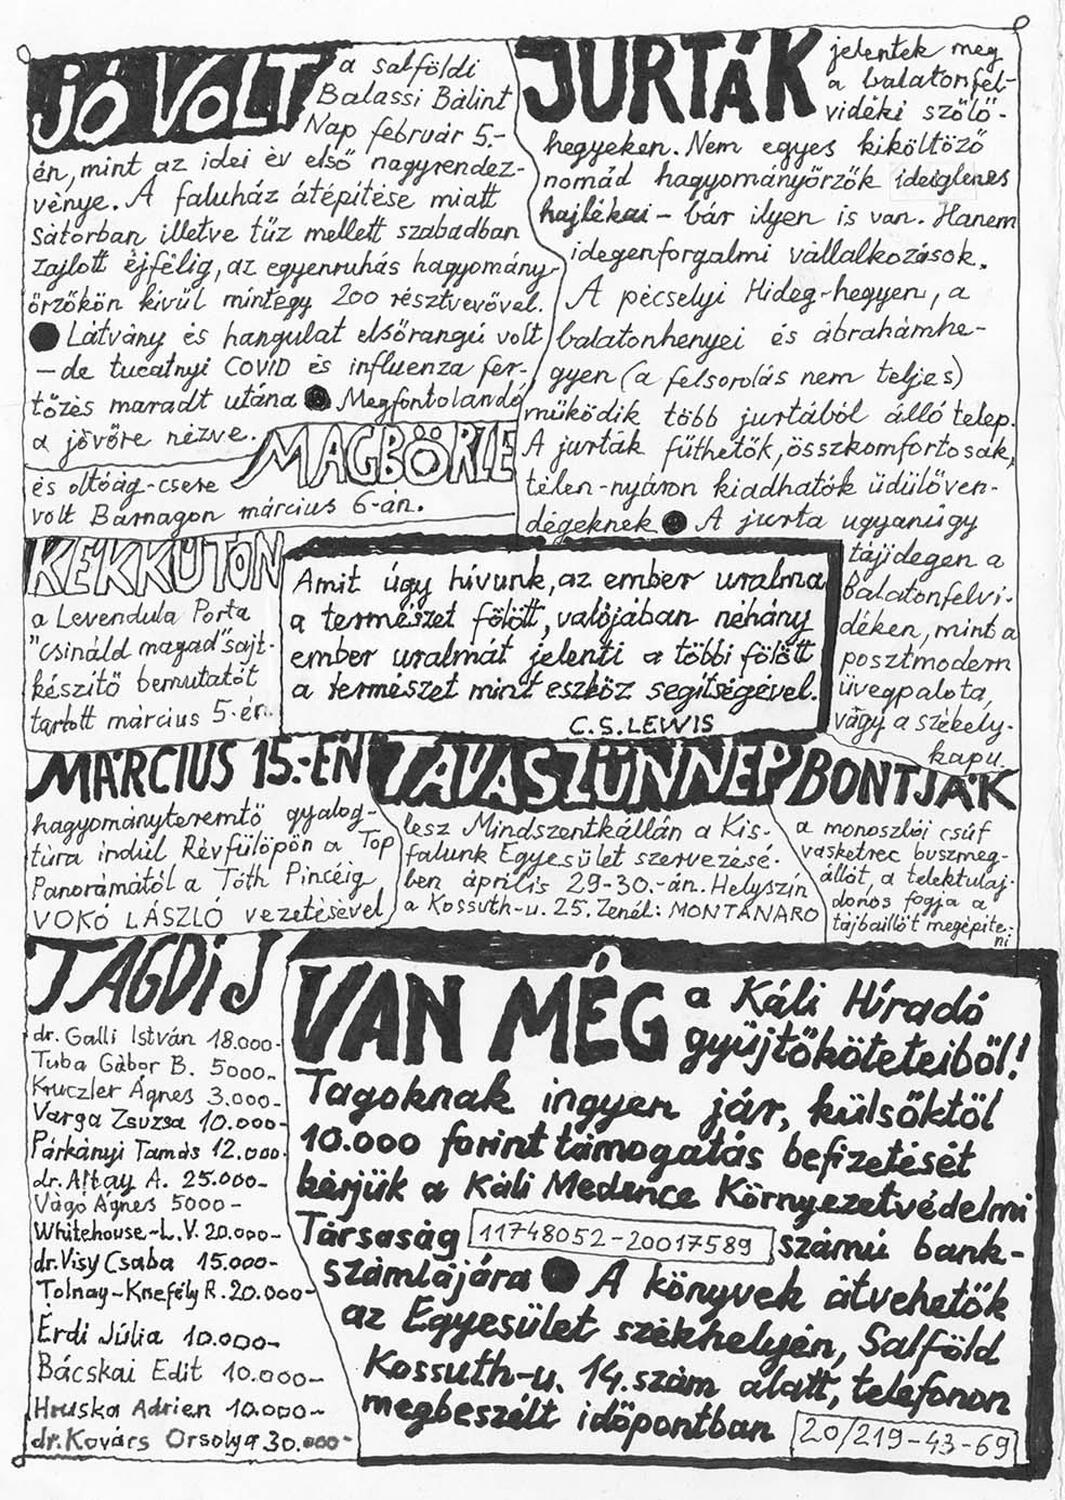 JÓ VOLT
a salföldi
Balassi Bálint
Nap február 5.-
én, mint az idei év első nagyrendez-
vénye. A faluház átépítése miatt
sátorban illetve tűz mellett szabadban
zajlott éjfélig, az egyenruhás hagyomány-
őrzőkön kívül mintegy 200 résztvevővel.
● Látvány és hangulat elsőrangú volt
– de tucatnyi COVID és influenza fer-
tőzés maradt utána ● Megfontolandó
a jövőre nézve.
MAGBÖRZE
és oltóág-csere
volt Barnagon március 6-án.
KÉKKÚTON
a Levendula Porta
"csináld magad" sajt-
készítő bemutatót
tartott március 5-én.
JURTÁK
jelentek meg
a balatonfel-
vidéki szőlő-
hegyeken. Nem egyes kiköltöző
nomád hagyományőrzők ideiglenes
hajlékai – bár ilyen is van. Hanem
idegenforgalmi vállalkozások.
A pécselyi Hideg-hegyen, a
balatonhenyei és ábrahámhe-
gyen (a felsorolás nem teljes)
működik több jurtából álló telep.
A jurták fűthetők, összkomfortosak,
télen-nyáron kiadhatók üdülőven-
dégeknek ● A jurta ugyanúgy
tájidegen a
balatonfelvi-
déken, mint a
posztmodern
üvegpalota,
vagy a székely-
kapu.
Amit úgy hívunk, az ember uralma
a természet fölött, valójában néhány
ember uralmát jelenti a többi fölött
a természet mint eszköz segítségével.
C.S. LEWIS
MÁRCIUS 15.-ÉN
hagyományteremtő gyalog-
túra indul Révfülöpön a Top
Panorámától a Tóth Pincéig
VOKÓ LÁSZLÓ vezetésével
TAVASZÜNNEP
lesz Mindszentkállán a Kis-
falunk Egyesület szervezésé-
ben április 29-30.-án. Helyszín
a Kossuth-u. 25. Zenél: MONTANARO
BONTJÁK
a monoszlói csúf
vasketrec buszmeg-
állót, a telektulaj-
donos fogja a
tájbaillőt megépíte-
ni
TAGDÍJ
dr. Galli István 18.000-
Tuba Gábor B. 5000-
Kruczler Ágnes 3.000-
Varga Zsuzsa 10.000-
Párkányi Tamás 12.000-
dr. Altay A. 25.000-
Vágó Ágnes 5000-
Whitehouse-L.V. 20.000-
dr. Visy Csaba 15.000-
Tolnay-Knefély R. 20.000-
Érdi Júlia 10.000-
Bácskai Edit 10.000-
Hruska Adrien 10.000-
dr. Kovács Orsolya 30.000-
VAN MÉG a Káli Híradó
gyűjtőköteteiből!
Tagoknak ingyen jár, külsőktől
10.000 forint támogatás befizetését
kérjük a Káli Medence Környezetvédelmi
Társaság 11748052-20017589 számú bank-
számlájára ● A könyvek átvehetők
az Egyesület székhelyén, Salföld
Kossuth-u. 14. szám alatt, telefonon
megbeszélt időpontban 20/219-43-69